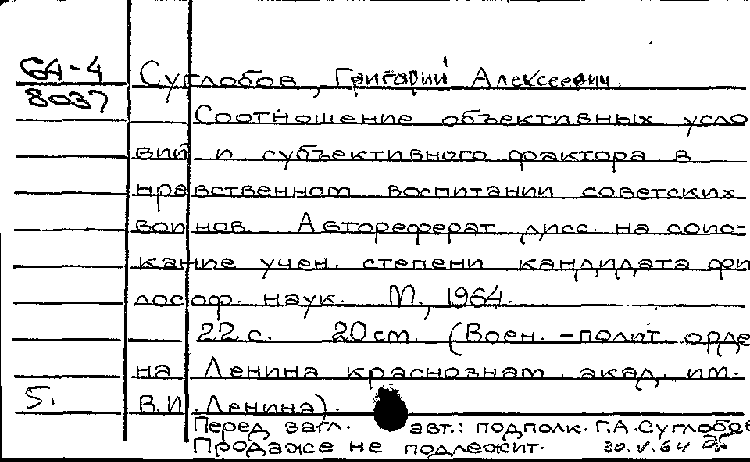 64-4
8037
Суглобов, Григорий Алексеевич.
Соотношение объективных усло
вий и субъективного фактора в
нравственном воспитании советских
воинов. Автореферат дисс. на соис-
кание учен. степени кандидата фи
лософ. наук. М., 1964.
22 с. 20 см. (Воен.-полит. орде
на Ленина краснознам. акад. им.
5. В.И. Ленина).
Перед загл. авт.: подполк. Г.А. Суглобов
Продаже не подлежит. 30.V.64